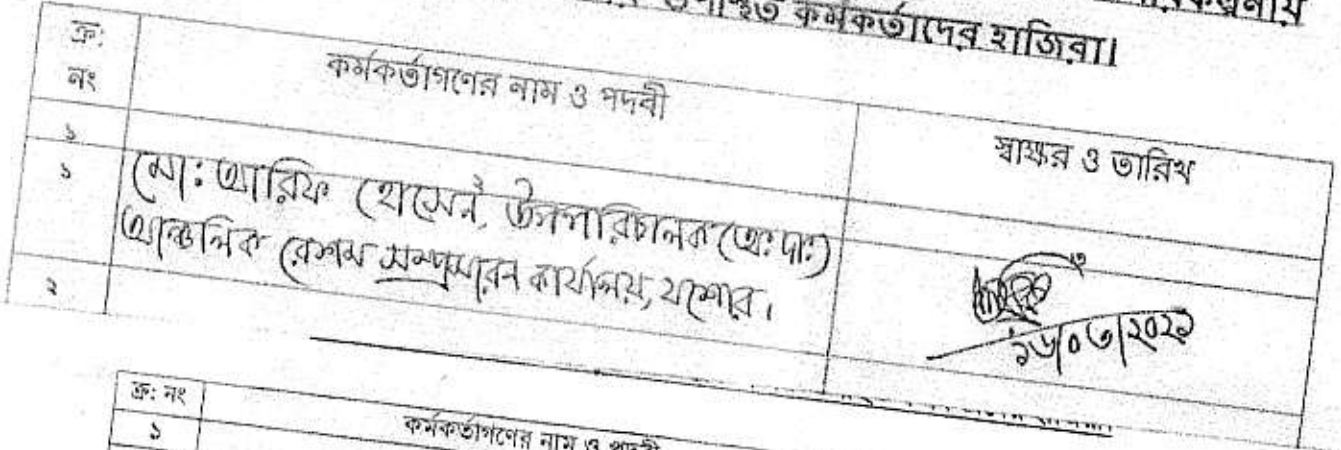 উপস্থিত কর্মকর্তাদের হাজিরা।
ক্র: নং
কর্মকর্তাগণের নাম ও পদবী
স্বাক্ষর ও তারিখ
১
১
মো: আরিফ হোসেন, উপপরিচালক (অ: দা:)
আঞ্চলিক রেশম সম্প্রসারন কার্যালয়, যশোর।
১৬/০৩/২০২১
২
ক্র: নং
কর্মকর্তাগণের নাম ও পদবী
১